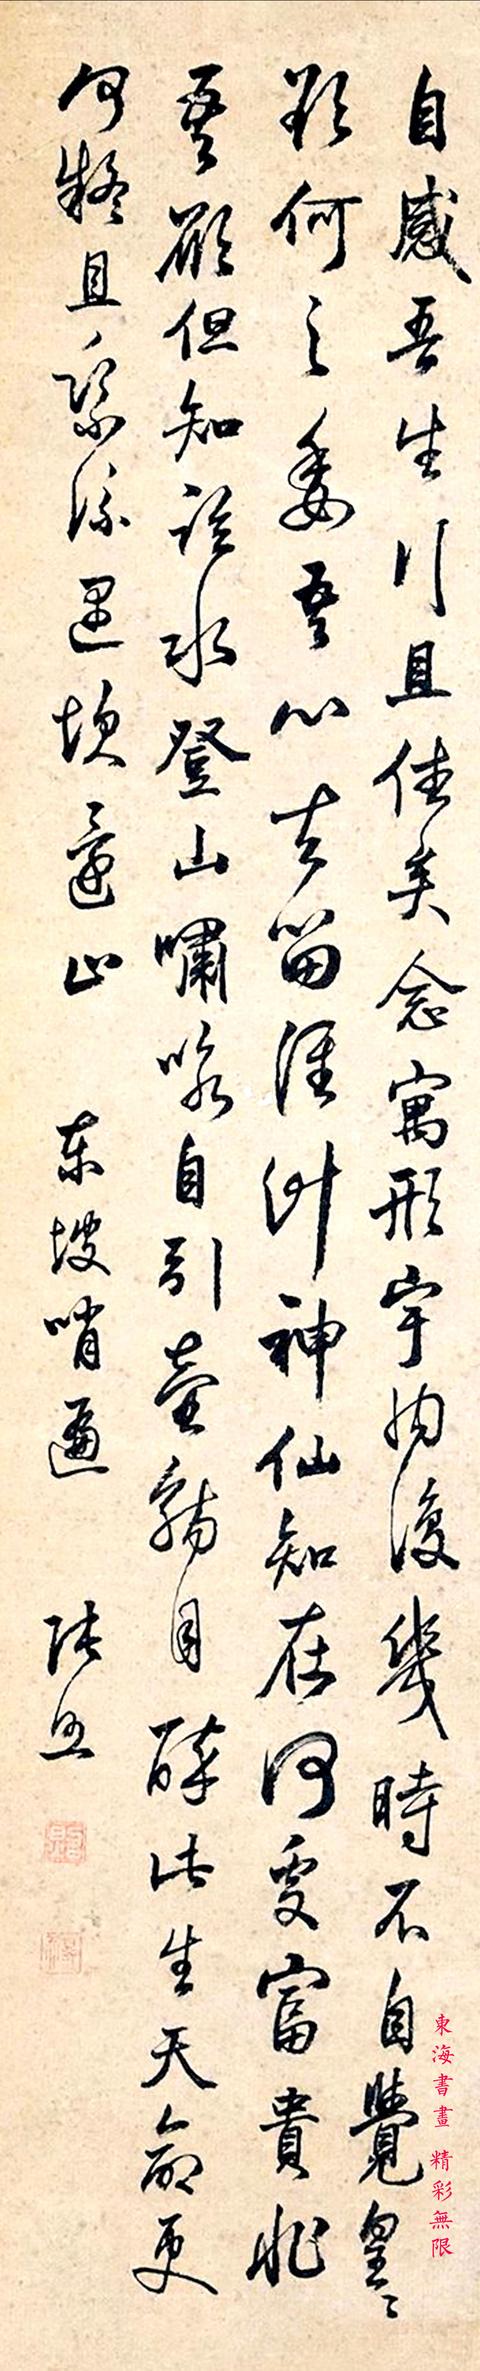 自感吾生行且休矣念寓形宇內復幾時不自覺皇〻
欲何之委吾心去留誰計神仙知在何處富貴非
吾願但知臨水登山嘯詠自引壺觴自醉此生天命更
何疑且乘流遇坎還止 東坡哨遍 張照
東海書畫 精彩無限